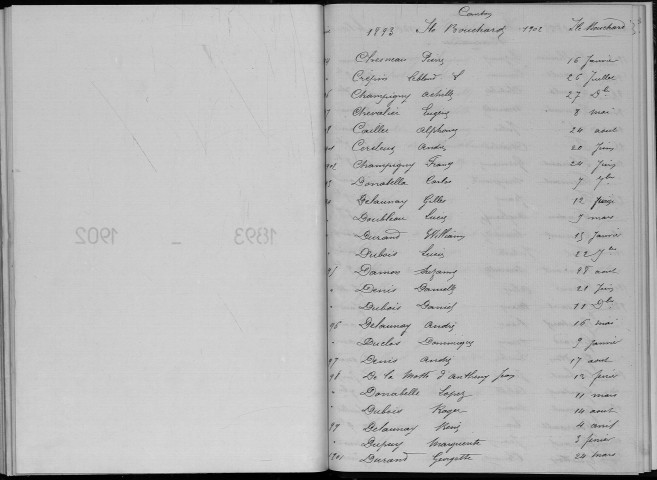 Canton
1893 Ile Bouchard 1902 Ile Bouchard
Chesneau Pierre 16 Janvier
Crépin 26 Juillet
Champigny Achille 27 Dbre
Chevalier Eugène 8 mai
Caillet Alphonse 24 aout
André 20 Juin
Champigny Franz 24 Juin
Donabella Carlos 7
Delaunay Gilles 12
Doubleau Lucy 9 mars
Durand William 15 Janvier
Dubois Lucien 22
Damon Suzanne 28 aout
Denis Danielle 21 Juin
Dubois Daniel 11 Dbre
96 Delaunay André 16 mai
" Duclos Dominique 9 Janvier
97 Denis André 17 aout
98 De la Motte d'Antheny Jean 13 février
Donabelle Lopez 11 mars
" Dubois Roger 14 aout
99 Delaunay René 4 avril
" Dupuy Marguerite 3 février
1901 Durand Georgette 24 mars
1893 - 1902